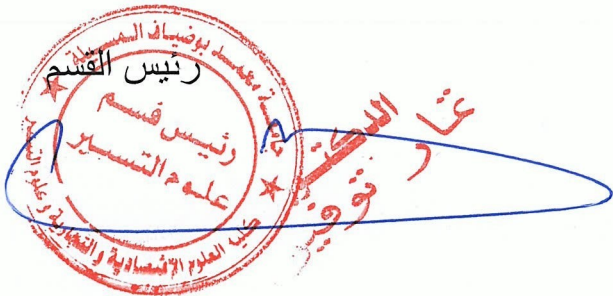 رئيس القسم
جامعة محمد بوضياف المسيلة
رئيس قسم
علوم التسيير
كلية العلوم الإقتصادية والتجارية وعلوم التسيير
الدكتور
توفيق